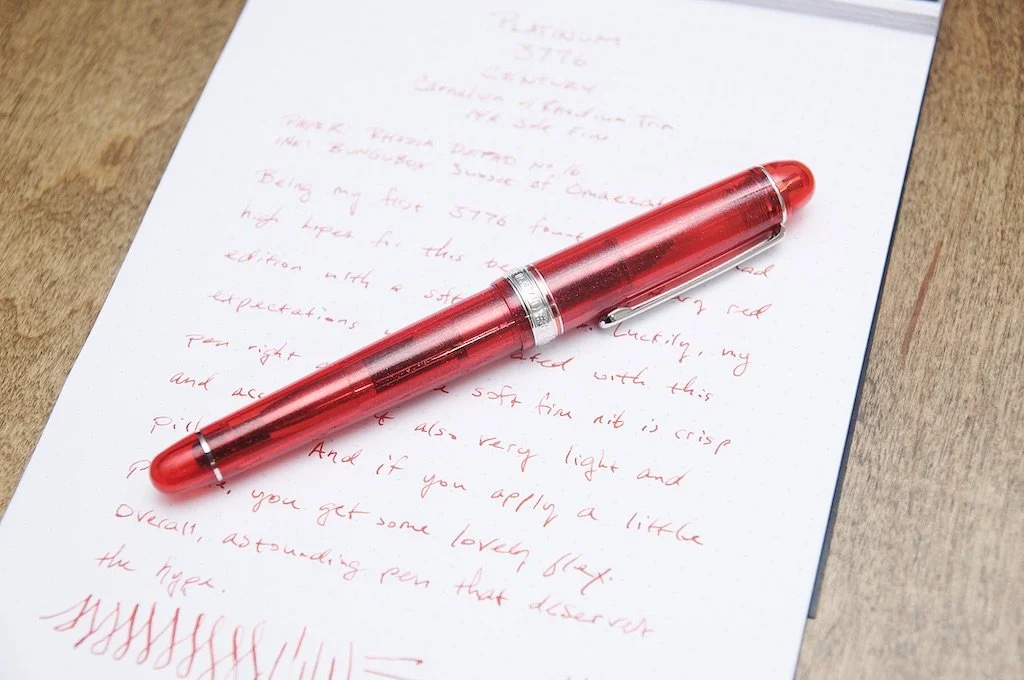 PLATINUM
3776
CENTURY
Carnelian w/ Rhodium Trim
14k Soft Fine
PAPER: RHODIA DOTPAD No 16
INK: BUNGUBOX Sunset of
Being my first 3776
high hopes for this
edition with a soft red
expectations Luckily, my
pen right with this
and soft fine nib is crisp
also very light and
And if you apply a little
you get some lovely flex.
Overall, astounding pen that deserves
the hype.